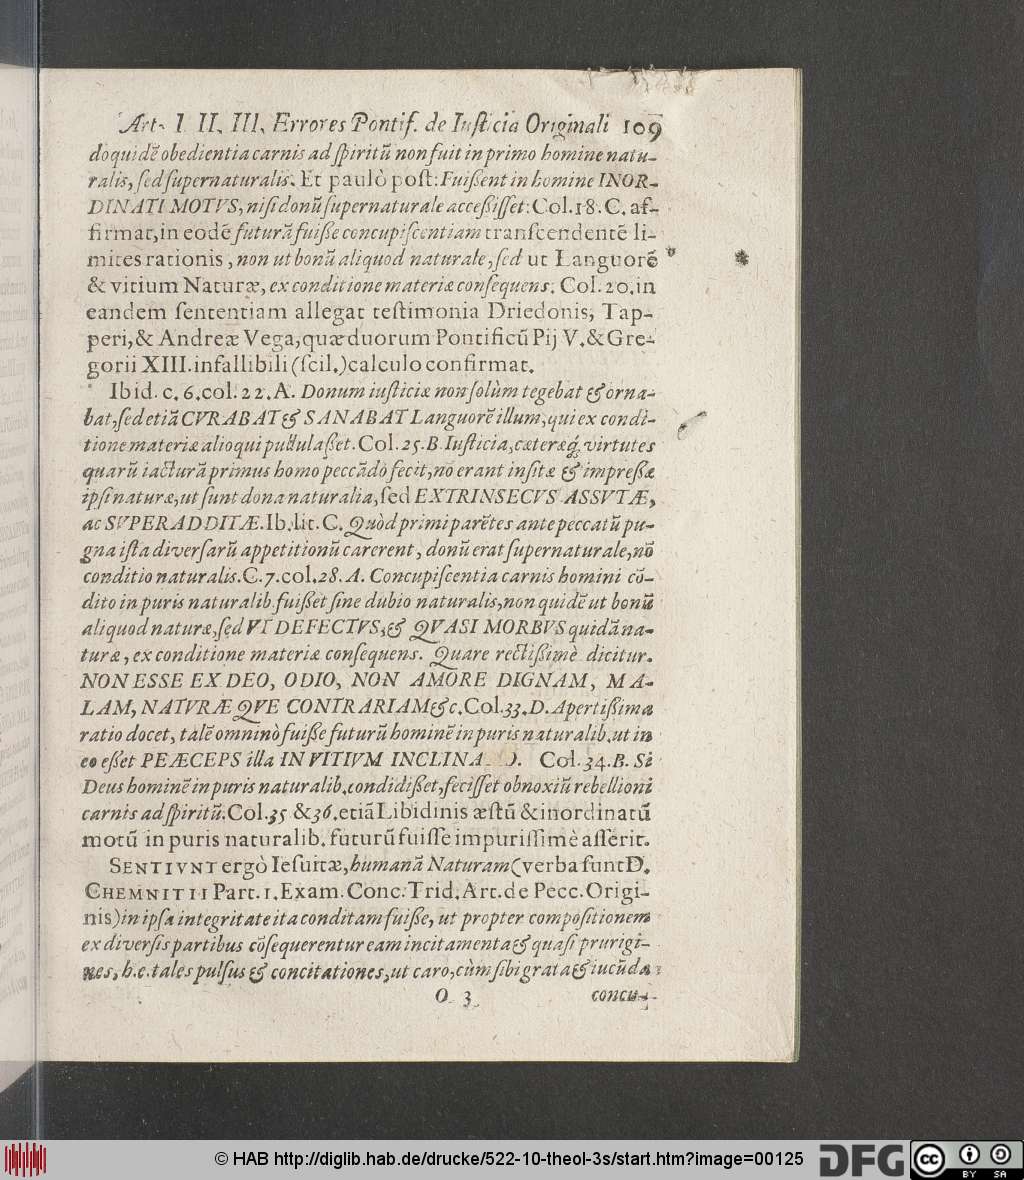 Art. I II. III. Errores Pontif. de Iuſticia Originali 109
dò quidẽ obedientia carnis ad ſpiritũ non fuit in primo homine natu-
ralis, ſed ſupernaturalis. Et paulò poſt: Fuißent in homine INOR-
DINATI MOTVS, niſi donũ ſupernaturale acceßiſſet: Col. 18. C. af-
firmat, in eodẽ futurã fuiße concupiſcentiam tranſcendentẽ li-
mites rationis, non ut bonũ aliquod naturale, ſed ut Languorẽ
& vitium Naturæ, ex conditione materiæ conſequens. Col. 20. in
eandem ſententiam allegat teſtimonia Driedonis, Tap-
peri, & Andreæ Vega, quæ duorum Pontificũ Pij V. & Gre-
gorii XIII. infallibili (ſcil.) calculo confirmat.
Ibid. c. 6. col. 22. A. Donum iuſticiæ non ſolùm tegebat & orna-
bat, ſed etiã CVRABAT & SANABAT Languorẽ illum, qui ex condi-
tione materiæ alioqui pullulaßet. Col. 25. B. Iuſticia, cæteræq́; virtutes
quarũ iacturã primus homo peccãdò fecit, nõ erant inſitæ & impreßæ
ipſi naturæ, ut ſunt dona naturalia, ſed EXTRINSECVS ASSVTÆ,
ac SVPERADDITÆ. Ib. lit. C. Quòd primi parẽtes ante peccatũ pu-
gna iſta diverſarũ appetitionũ carerent, donũ erat ſupernaturale, nõ
conditio naturalis. C. 7. col. 28. A. Concupiſcentia carnis homini cõ-
dito in puris naturalib. fuißet ſine dubio naturalis, non quidẽ ut bonũ
aliquod naturæ, ſed VT DEFECTVS, & QVASI MORBVS quidã na-
turæ, ex conditione materiæ conſequens. Quare rectißimè dicitur.
NON ESSE EX DEO, ODIO, NON AMORE DIGNAM, MA-
LAM, NATVRÆQVE CONTRARIAM &c. Col. 33. D. Apertißima
ratio docet, talẽ omninò fuiße futurũ hominẽ in puris naturalib. ut in
eo eßet PEÆCEPS illa IN VITIVM INCLINA O. Col. 34. B. Si
Deus hominẽ in puris naturalib. condidißet, feciſſet obnoxiũ rebellioni
carnis ad ſpiritũ. Col. 35 & 36. etiã Libidinis æſtũ & inordinatũ
motũ in puris naturalib. futurũ fuiſſe impuriſſimè aſſerit.
SENTIVNT ergò Ieſuitæ, humanã Naturam (verba ſunt D.
CHEMNITII Part. 1. Exam. Conc. Trid. Art. de Pecc. Origi-
nis) in ipſa integritate ita conditam fuiße, ut propter compoſitionem
ex diverſis partibus cõſequerentur eam incitamenta & quaſi prurigi-
nes, h. e. tales pulſus & concitationes, ut caro, cùm ſibi grata & iucũda
O 3 concu-
© HAB http://diglib.hab.de/drucke/522-10-theol-3s/start.htm?image=00125
DFG
cc BY SA